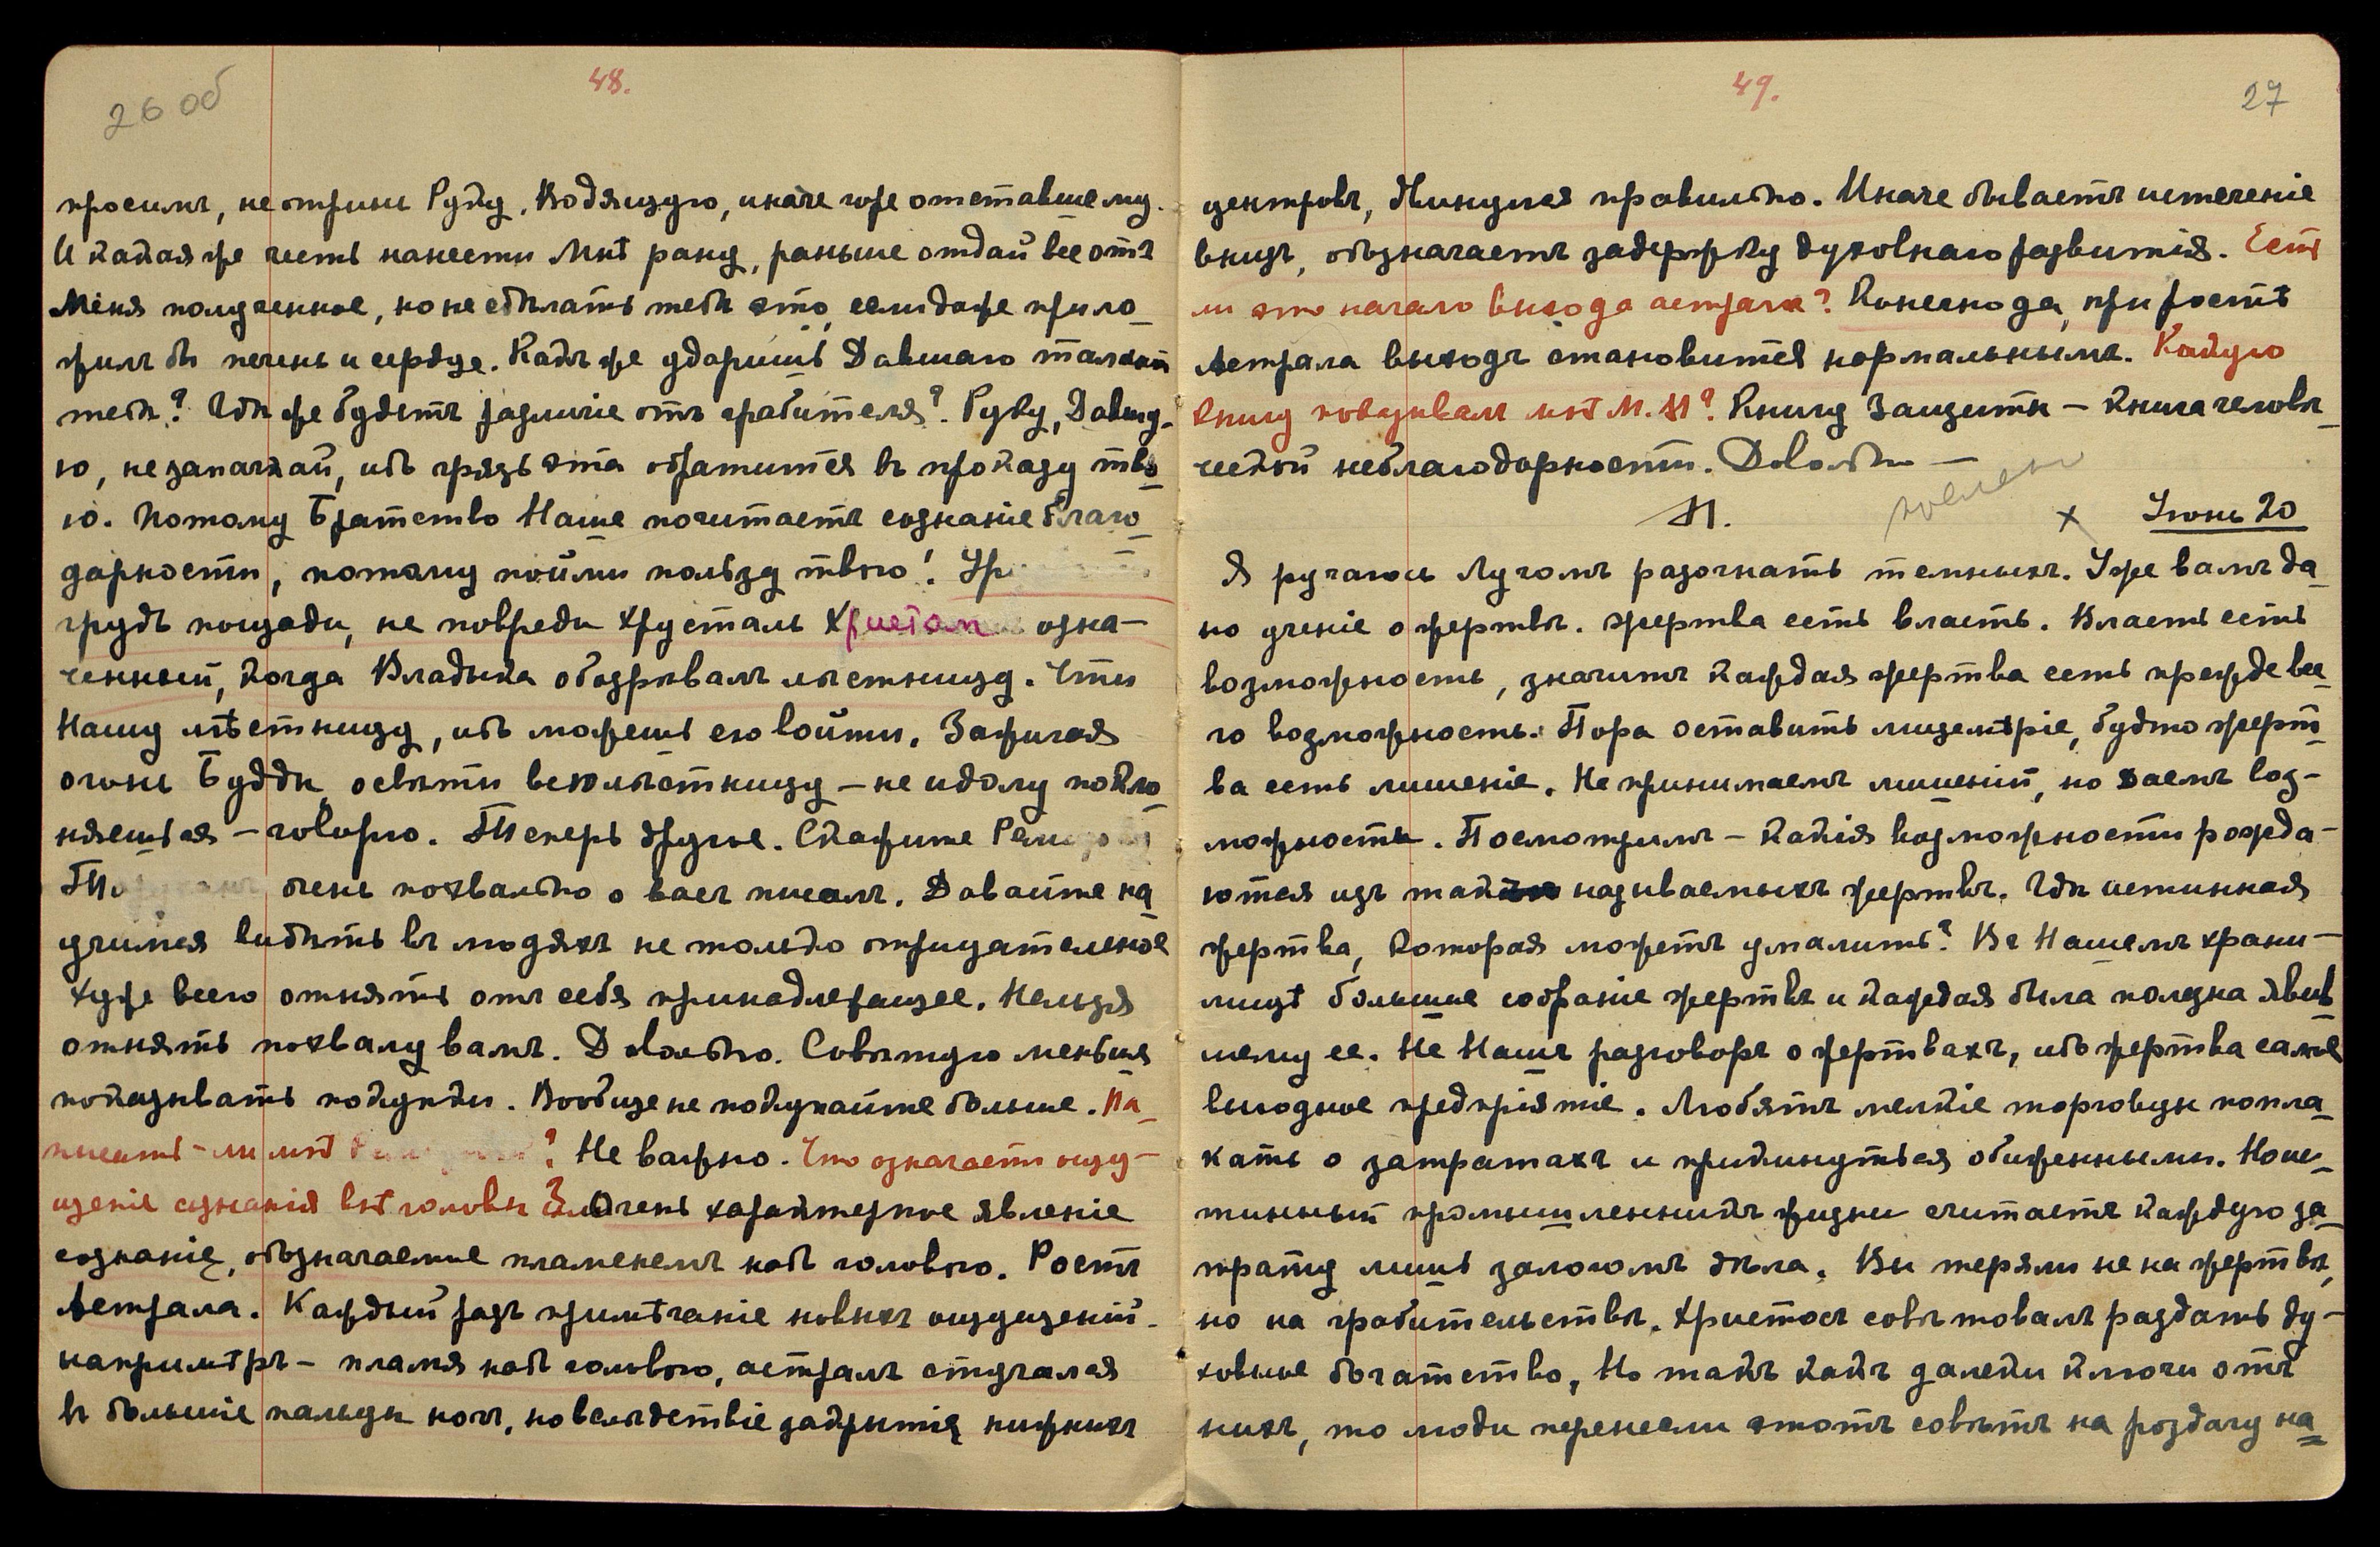 26 об
48.
просимъ, не отринь Руку, Водящую, иначе горе отставшему.
И какая же честь нанести Мнѣ рану, раньше отдай все отъ
Меня полученное, но не сдѣлать тебѣ это, если даже прило_
жилъ бы печень и сердце. Какъ же ударишь Давшаго
тебѣ? Гдѣ же будетъ различіе отъ грабителя? Руку, Давшу_
ю, не запачкай, ибо грязь эта обратится въ проказу тво_
ю. Потому Братство Наше почитаетъ сознаніе благо_
дарности, потому пойми пользу твою!
грудь пощади, не повреди хрусталь озна-
ченный, когда Владыка обозрѣвалъ лѣстницу. Чти
Нашу лѣстницу, ибо можешь ею войти. Зажигая
огонь Будды, освѣти всю лѣстницу – не идолу покло_
няешься – говорю. Теперь другое. Скажите
очень похвально о васъ писалъ. Давайте на_
учимся видѣть въ людяхъ не только отрицательное
хуже всего отнять отъ себя принадлежащее. Нельзя
отнять похвалу вамъ. Довольно. Совѣтую меньше
показывать покупки. Вообще не покупайте больше. На_
писать-ли мнѣ ? Не важно. Что означаетъ ощу-
щеніе сознанія внѣ головы? Очень характерное явленіе
сознанія, обозначаемое пламенемъ надъ головою. Ростъ
Астрала. Каждый разъ примѣчаніе новыхъ ощущеній-
напримѣръ – пламя надъ головою, астралъ стучался
въ большіе пальцы ногъ, но вслѣдствіе закрытія нижнихъ
49.
27
центровъ, двинулся правильно. Иначе бываетъ истеченіе
внизъ, обозначаетъ задержку духовнаго развитія. Есть
ли это начало выхода астрала? Конечно да, при ростѣ
Астрала выходъ становится нормальнымъ. Какую
книгу показывалъ мнѣ М. М? Книгу Защиты – книга человѣ_
ческой неблагодарности. Довольно –
М. х Іюнь 20
Я ручаюсь Лучомъ разогнать темныхъ. Уже вамъ да_
но ученіе о жертвѣ. Жертва есть власть. Власть есть
возможность, значитъ каждая жертва есть прежде все_
го возможность. Пора оставить лицемѣріе, будто жерт_
ва есть лишеніе. Не принимаемъ лишеній, но даемъ воз-
можность. Посмотримъ – какія возможности рожда-
ются изъ такъ называемыхъ жертвъ. Гдѣ истинная
жертва, которая можетъ умалить? Въ Нашемъ храни-
лищѣ большое собраніе жертвъ и каждая была полезна явив_
шему ее. Не Нашъ разговоръ о жертвахъ, ибо жертва самое
выгодное предпріятіе. Любятъ мелкіе торговцы попла_
кать о затратахъ и прикинуться обиженными. Но ис_
тинный промышленникъ жизни считаетъ каждую за_
трату лишь залогомъ дѣла. Вы теряли не на жертвѣ,
но на грабительствѣ. Христосъ совѣтовалъ раздать ду-
ховное богатство, Но такъ какъ далеки ключи отъ
нихъ, то люди перенесли этотъ совѣтъ на раздачу на_